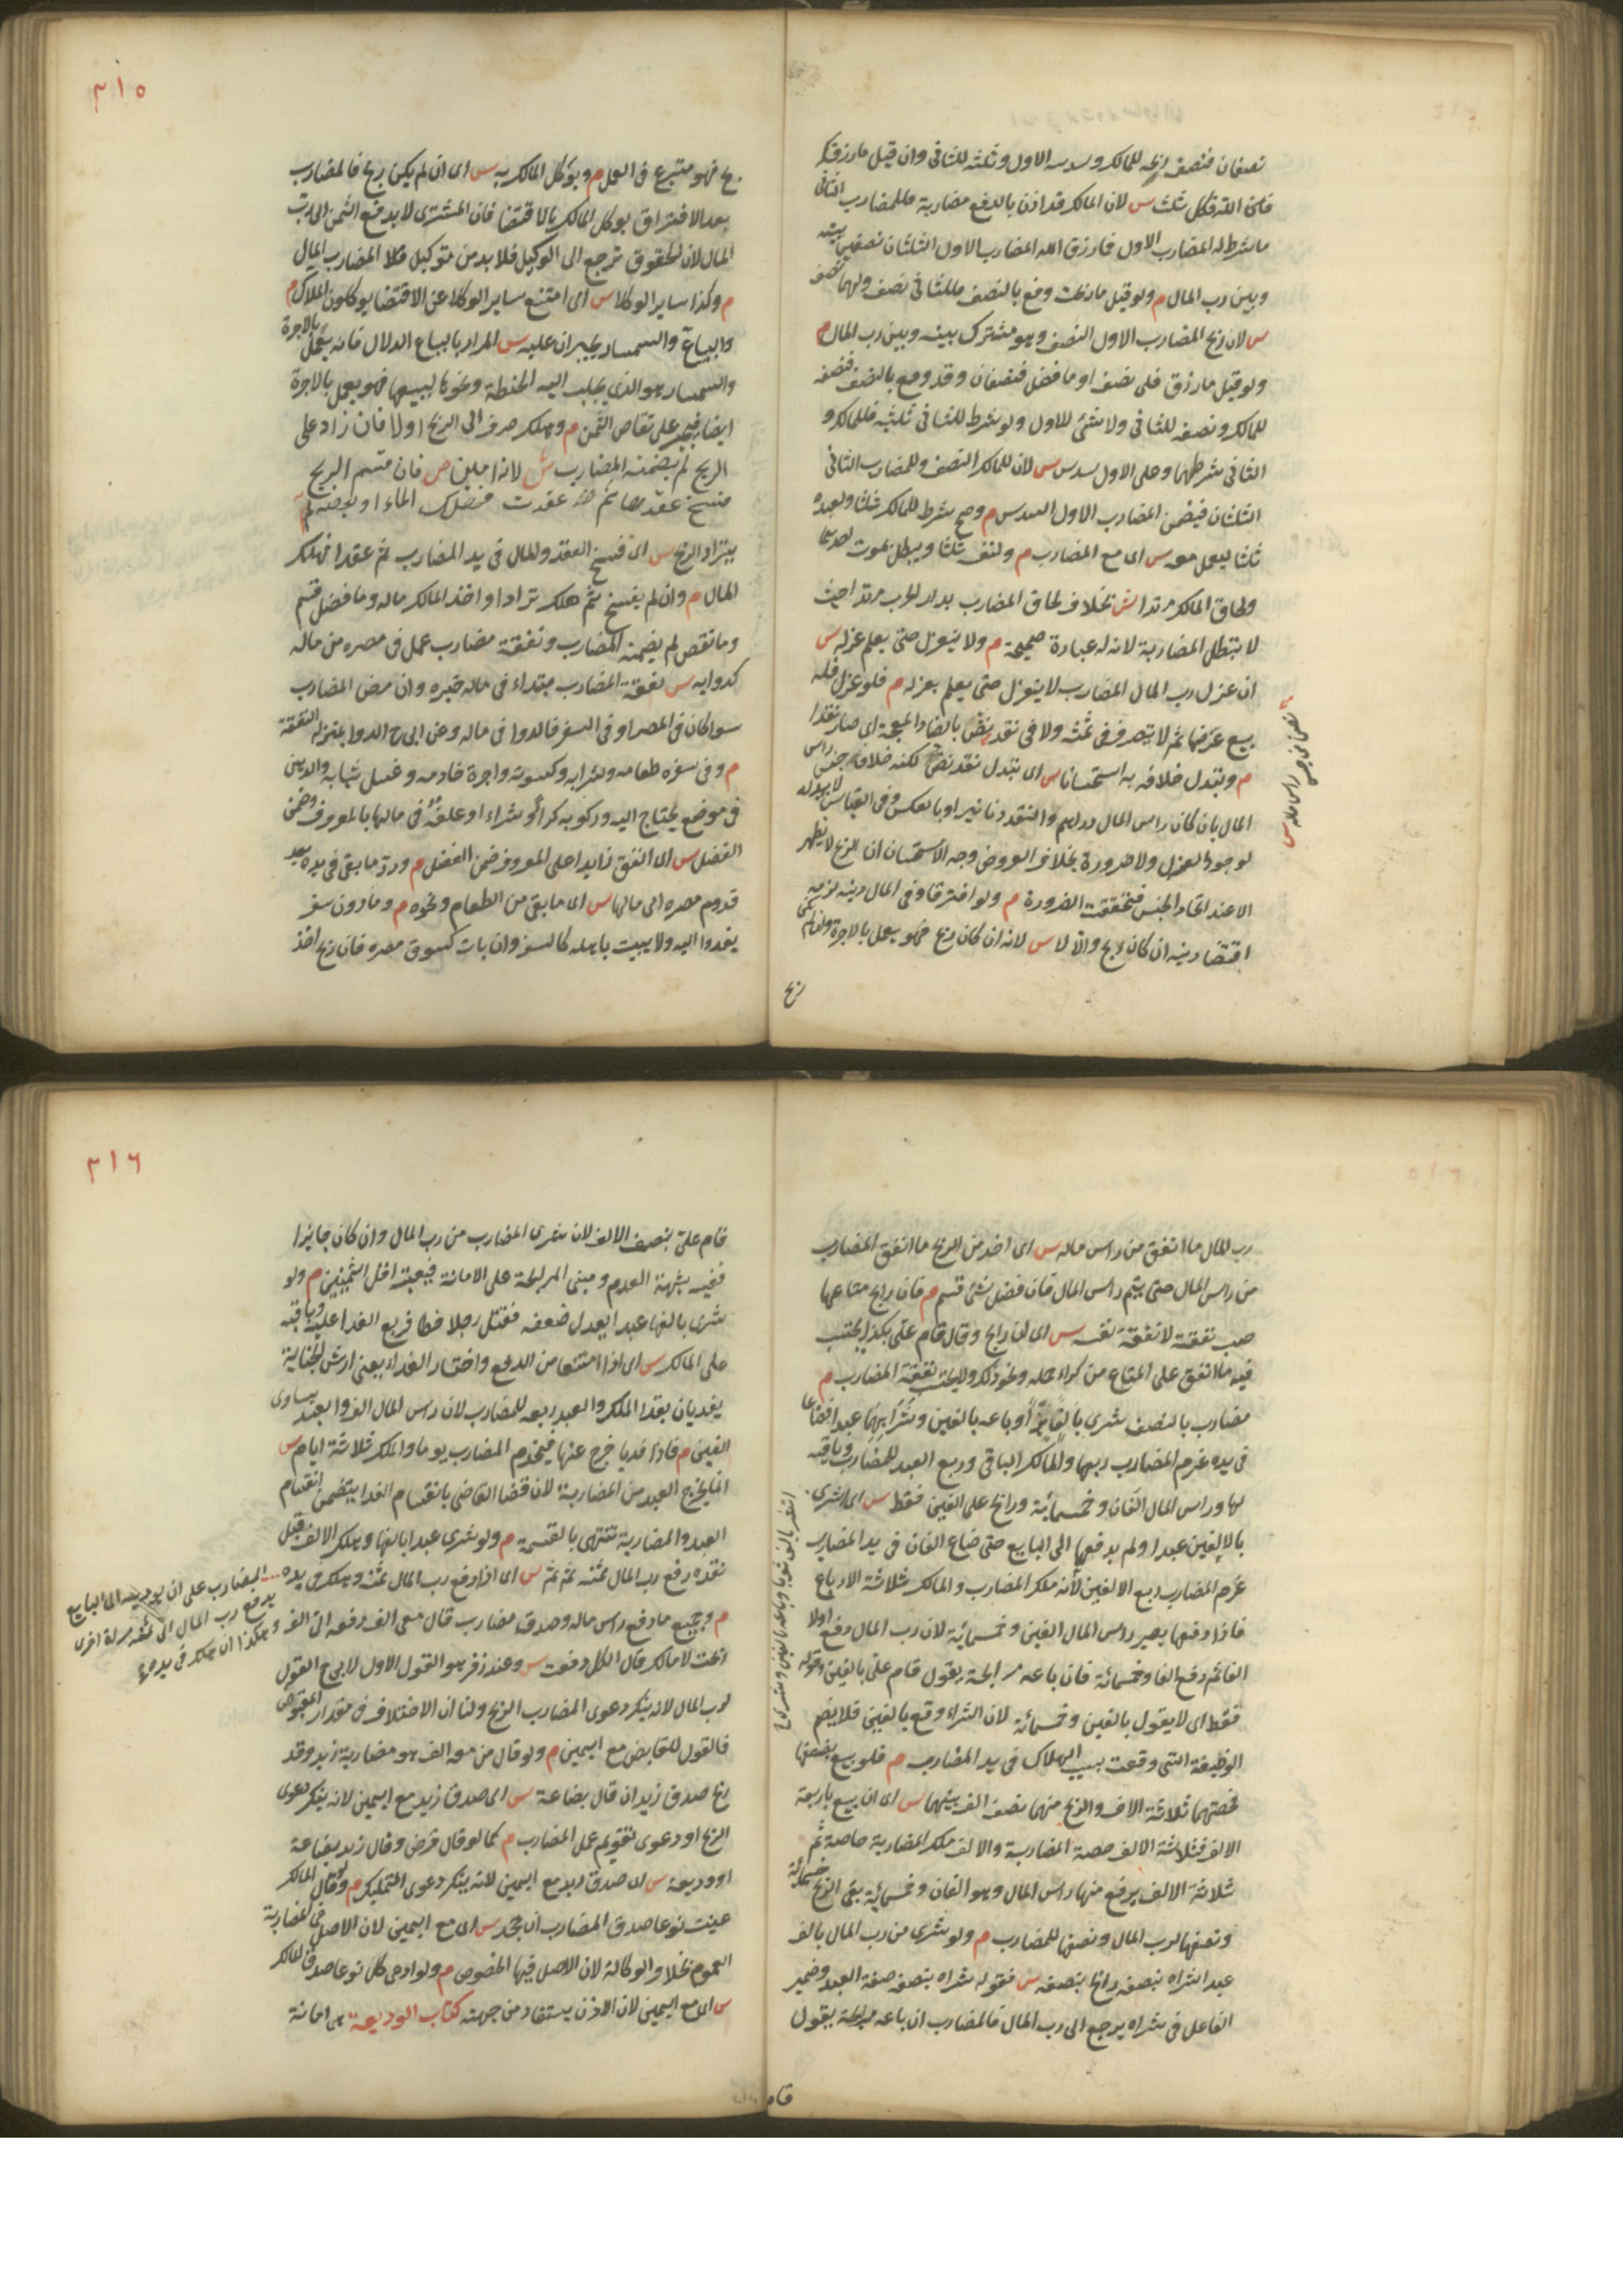 نصفان فنصف ربحه للمالك وسدسه الاول وثلثه للثانى وان قيل ما رزقك
الله فلكل ثلث س لان المالك قد اذن بالدفع مضاربة فللمضارب الثانى
ما شرط له المضارب الاول فما رزق الله المضارب الاول الثلثان نصفين بينه
وبين رب المال م ولو قيل ما ربحت ودفع بالنصف فللثانى نصف ولهما نصف
س لان ربح المضارب الاول النصف وهو مشترك بينه وبين رب المال م
ولو قيل ما رزق فلى نصف او ما فضل فنصفان وقد دفع بالنصف فنصفه
للمالك ونصفه للثانى ولا شئ للاول ولو شرط للثانى ثلثيه فللمالك و
الثانى شرطهما وعلى الاول سدس س لان للمالك النصف وللمضارب الثانى
الثلثان فيضمن المضارب الاول السدس م وصح شرط للمالك ثلثا ولعبده
ثلثا ليعمل معه س اى مع المضارب م ولنفسه ثلثا ويبطل بموت احدهما
ولحاق المالك مرتدا ش بخلاف لحاق المضارب بدار الحرب مرتدا حيث
لا تبطل المضاربة لانه له عبارة صحيحة م ولا ينعزل حتى يعلم عزله س
ان عزل رب المال المضارب لا ينعزل حتى يعلم بعزله م فلو عزل فله
بيع عرضها ثم لا يتصرف فى ثمنه ولا فى نقد نض بالضاد المعجمة اى صار نقدا
م ويبدل خلافه به استحسانا س اى يبدل نقد نض لكنه خلاف جنس راس
المال بان كان راس المال دراهم والنقد دنانير او بالعكس وفى القياس لا يبدله
لوجود العزل ولا ضرورة بخلاف العروض وجه الاستحسان ان الربح لا يظهر
الا عند اتحاد الجنس فتحققت الضرورة م ولو افترقا وفى المال دين لزمه
اقتضا دينه ان كان ربح والا لا س لانه ان كان ربح فهو يعمل بالاجرة وان لم يكن
ربح
٣١٥
ربح فهو متبرع فى العمل م ويوكل المالك به س اى ان لم يكن ربح فالمضارب
بعد الافتراق يوكل المالك بالاقتضا فان المشترى لا يدفع الثمن الى رب
المال لان الحقوق ترجع الى الوكيل فلا بد من توكيل المضارب المال
م وكذا ساير الوكلا س اى امتنع ساير الوكلا عن الاقتضا يوكلون الملاك م
والبياع والسمسار يجبران عليه س المراد بالبياع الدلال فانه يعمل بالاجرة
والسمسار هو الذى يجلب اليه الحنطة ونحوها ليبيعها فهو يعمل بالاجرة
ايضا فيجبر على تقاضى الثمن م وما هلك صرف الى الربح اولا فان زاد على
الربح لم يضمنه المضارب ش لانه امين ص فان قسم الربح
فسخ عقدها ثم عقدت فهلك المال او بعضه لم
يترادا الربح س اى فسخ العقد والمال فى يد المضارب ثم عقدا فهلك
المال م وان لم يفسخ ثم هلك ترادا واخذ المالك ماله وما فضل قسم
وما نقص لم يضمنه المضارب ونفقة مضارب عمل فى مصره من ماله
كدوايه س نفقة المضارب مبتداء فى ماله خبره وان مرض المضارب
سوا كان فى المصر او فى السفر فالدوا فى ماله وعن ابى ح الدوا بمنزلة النفقة
م وفى سفره طعامه وشرابه وكسوته واجرة خادمه وغسل ثيابه والدهن
فى موضع يحتاج اليه وركوبه كراء او شراء او علفه فى مالها بالمعروف وضمن
الفضل س اى انفق زايدا على المعروف ضمن الفضل م ورد ما بقى فى يده بعد
قدوم مصره الى مالها س اى ما بقى من الطعام ونحوه م وما دون سفر
يغدوا اليه ولا يبيت باهله كالسفر وان بات كسوق مصره فان ربح اخذ
رب المال ما انفق من راس ماله س اى اخذ من الربح ما انفق المضارب
من راس المال حتى يتم راس المال فان فضل شئ قسم م فان رابح متاعها
حسب نفقته لا نفقة نفسه س اى ان رابح وقال قام على بكذا يحتسب
فيه ما انفق على المتاع من كراء حمله ونحو ذلك ولا يحتسب نفقة المضارب م
مضارب بالنصف شرى بالفها بزا وباعه بالفين وشرى بهما عبدا فضاعا
فى يده غرم المضارب ربعها والمالك الباقى وربع العبد للمضارب وباقيه
لها وراس المال الفان وخمسمائة ورابح على الفين فقط س اى اشرى
بالالفين عبدا ولم يدفعها الى البايع حتى ضاع الفان فى يد المضارب
غرم المضارب ربع الالفين لانه ملك المضارب والمالك ثلاثة الارباع
فاذا دفعها يصير راس المال الفين وخمسمائة لان رب المال دفع اولا
الفا ثم دفع الفا وخمسمائة فان باعه مرابحة يقول قام على بالفين وقوله
فقط اى لا يقول بالفين وخمسمائة لان الشراء وقع بالفين فلا يضم
الوظيفة التى وقعت بسبب الهلاك فى يد المضارب م فلو بيع بضعفهما
فحصتهما ثلاثة الاف والربح منهما نصف الف بينهما س اى ان بيع باربعة
الالف فثلاثة الالف حصة المضاربة والالف ملك المضاربة خاصة ثم
ثلاثة الالف يرفع منها راس المال وهو الفان وخمسمائة بقى الربح خمسمائة
ونصفها لرب المال ونصفها للمضارب م ولو شرى من رب المال بالف
عبدا شراه بنصفه رابح بنصفه س فقوله شراه بنصفه صفة العبد وضمير
الفاعل فى شراه يرجع الى رب المال فالمضارب ان باعه مرابحة يقول
قام
٣١٦
قام على بنصف الالف لان شرى المضارب من رب المال وان كان جايزا
ففيه شبهة العدم ومبنى المرابحة على الامانة فيعتبر اقل الثمنين م ولو
شرى بالفها عبدا يعدل ضعفه فقتل رجلا خطا فربع الفدا عليه وباقيه
على المالك س اى اذا امتنعا من الدفع واختار الفداء يعنى ارش الجناية
يفديان بقدر الملك والعبد ربعه للمضارب لان راس المال الف والعبد يساوى
الفين م فاذا فديا خرج عنها فيخدم المضارب يوما والمالك ثلاثة ايام س
انما يخرج العبد من المضاربة لان قضا القاضى بانقسام الفدا يتضمن انقسام
العبد والمضاربة تنتهى بالقسمة م ولو شرى عبدا بالفها وهلك الالف قبل
نقده دفع رب المال ثمنه ثم ثم س اى اذا دفع رب المال ثمنه وهلك فى يده
م وجميع ما دفع راس ماله وصدق مضارب قال معى الف دفعه الى الف و
ربحت لا مالك قال الكل دفعت س وعند زفر هو القول الاول لابى ح القول
لرب المال لانه ينكر دعوى المضارب الربح ولنا ان الاختلاف فى مقدار المقبوض
فالقول للقابض مع اليمين م ولو قال من معه الف هو مضاربة زيد وقد
ربح صدق زيد ان قال بضاعة س اى صدق زيد مع اليمين لانه ينكر دعوى
الربح او دعوى تقويم عمل المضارب م كما لو قال قرض وقال زيد بضاعة
او وديعة س اى صدق زيد مع اليمين لانه ينكر دعوى التمليك م ولو قال المالك
عينت نوعا صدق المضارب ان جحد س اى مع اليمين لان الاصل فى المضاربة
العموم بخلاف الوكالة لان الاصل فيها الخصوص م ولو ادعى كل نوعا صدق المالك
س اى مع اليمين لان الاذن يستفاد من جهته كتاب الوديعة هى امانة